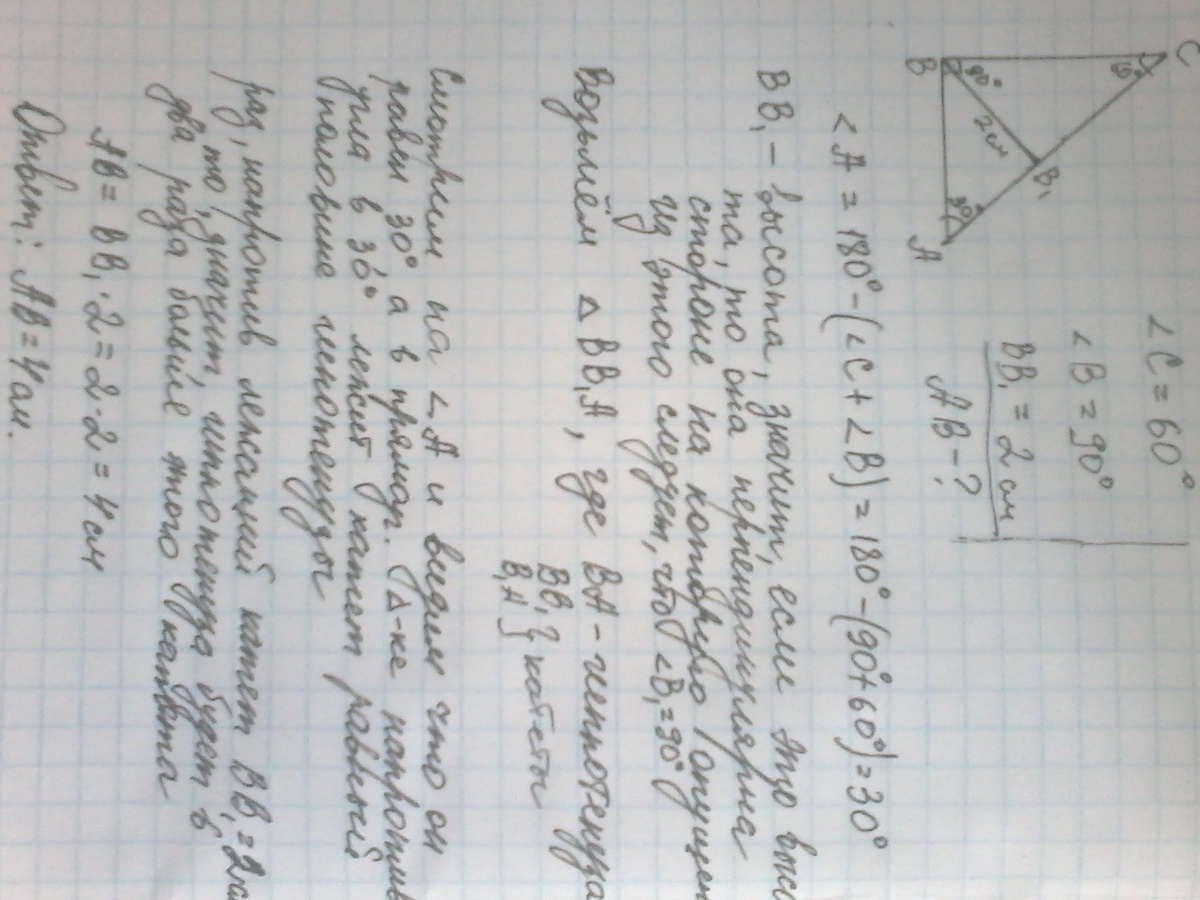 C
60°
B
90°
2см
B₁
30°
A
∠C = 60°
∠B = 90°
BB₁ = 2 см
AB - ?
∠A = 180° - (∠C + ∠B) = 180° - (90° + 60°) = 30°
BB₁ - высота, значит, если это высо
та, то она перпендикулярна
стороне на которую опущен
Из этого следует, что ∠B₁ = 90°
Возьмём △BB₁A, где BA - гиппотенуза
BB₁ } катеты
B₁A
Смотрим на ∠A и видим что он
равен 30° а в прямоуг. △-ке напротив
угла в 30° лежит катет равный
половине гиппотенузы
раз, напротив лежащий катет BB₁ = 2см
то, значит, гиппотенуза будет в
два раза больше этого катета
AB = BB₁ · 2 = 2 · 2 = 4 см
Ответ: AB = 4 см.